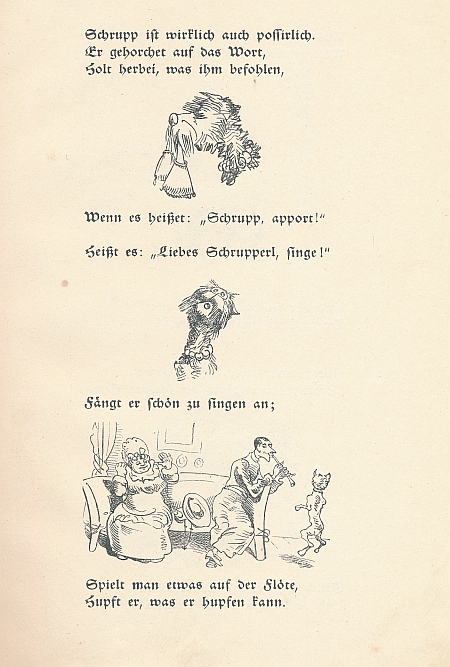 Schrupp ist wirklich auch possirlich.
Er gehorchet auf das Wort,
Holt herbei, was ihm befohlen,
Wenn es heißet: „Schrupp, apport!“
Heißt es: „Liebes Schrupperl, singe!“
Fängt er schön zu singen an;
Spielt man etwas auf der Flöte,
Hupft er, was er hupfen kann.